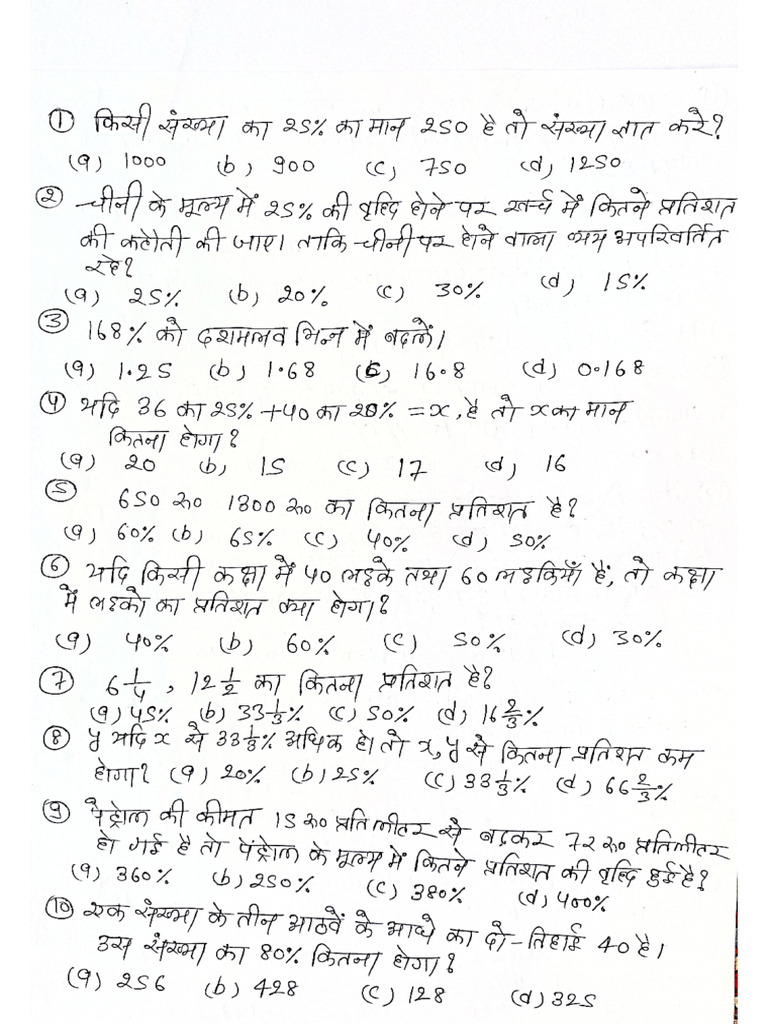 ① किसी संख्या का 25% का मान 250 है तो संख्या ज्ञात करे?
(a) 1000 (b) 900 (c) 750 (d) 1250
② चीनी के मूल्य में 25% की वृद्धि होने पर खर्च में कितने प्रतिशत
की कटौती की जाए। ताकि चीनी पर होने वाला व्यय अपरिवर्तित
रहे?
(a) 25% (b) 20% (c) 30% (d) 15%
③ 168% को दशमलव भिन्न में बदलें।
(a) 1.25 (b) 1.68 (c) 16.8 (d) 0.168
④ यदि 36 का 25% + 40 का 20% = x, है तो x का मान
कितना होगा?
(a) 20 (b) 15 (c) 17 (d) 16
⑤ 650 रू० 1300 रू० का कितना प्रतिशत है?
(a) 60% (b) 65% (c) 40% (d) 50%
⑥ यदि किसी कक्षा में 40 लड़के तथा 60 लड़कियाँ हैं, तो कक्षा
में लड़को का प्रतिशत क्या होगा?
(a) 40% (b) 60% (c) 50% (d) 30%
⑦ 6 1/4 , 12 1/2 का कितना प्रतिशत है?
(a) 45% (b) 33 1/3% (c) 50% (d) 16 2/3%
⑧ y यदि x से 33 1/3% अधिक हो तो x, y से कितना प्रतिशत कम
होगा? (a) 20% (b) 25% (c) 33 1/3% (d) 66 2/3%
⑨ पेट्रोल की कीमत 15 रू० प्रति लीटर से बढ़कर 72 रू० प्रतिलीटर
हो गई है तो पेट्रोल के मूल्य में कितने प्रतिशत की वृद्धि हुई है?
(a) 360% (b) 250% (c) 380% (d) 400%
⑩ एक संख्या के तीन आठवें के आधे का दो-तिहाई 40 है।
उस संख्या का 80% कितना होगा?
(a) 256 (b) 428 (c) 128 (d) 325